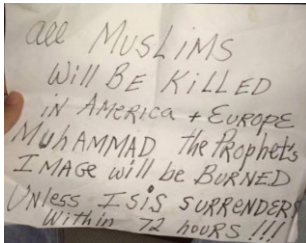 all MUSLIMS
Will BE KillED
in AMERICA + EUROPE
MuhAMMAD the Prophet's
IMAGE will be BURNED
Unless ISIS SURRENDERS
Within 72 hours!!!